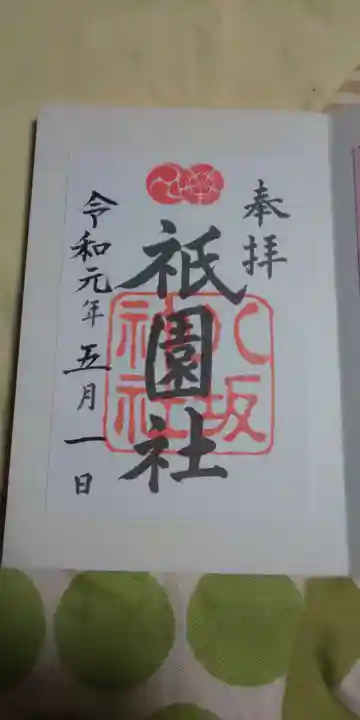 奉拝
祇園社
八坂
神社
令和元年五月一日